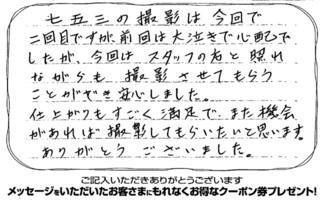 七五三の撮影は今回で
二回目ですが、前回は大泣きで心配で
したが、今回はスタッフの方と照れ
ながらも撮影させてもらう
ことができ安心しました。
仕上がりもすごく満足で、また機会
があれば撮影してもらいたいと思います。
ありがとうございました。
ご記入いただきありがとうございます
メッセージをいただいたお客さまにもれなくお得なクーポン券プレゼント!